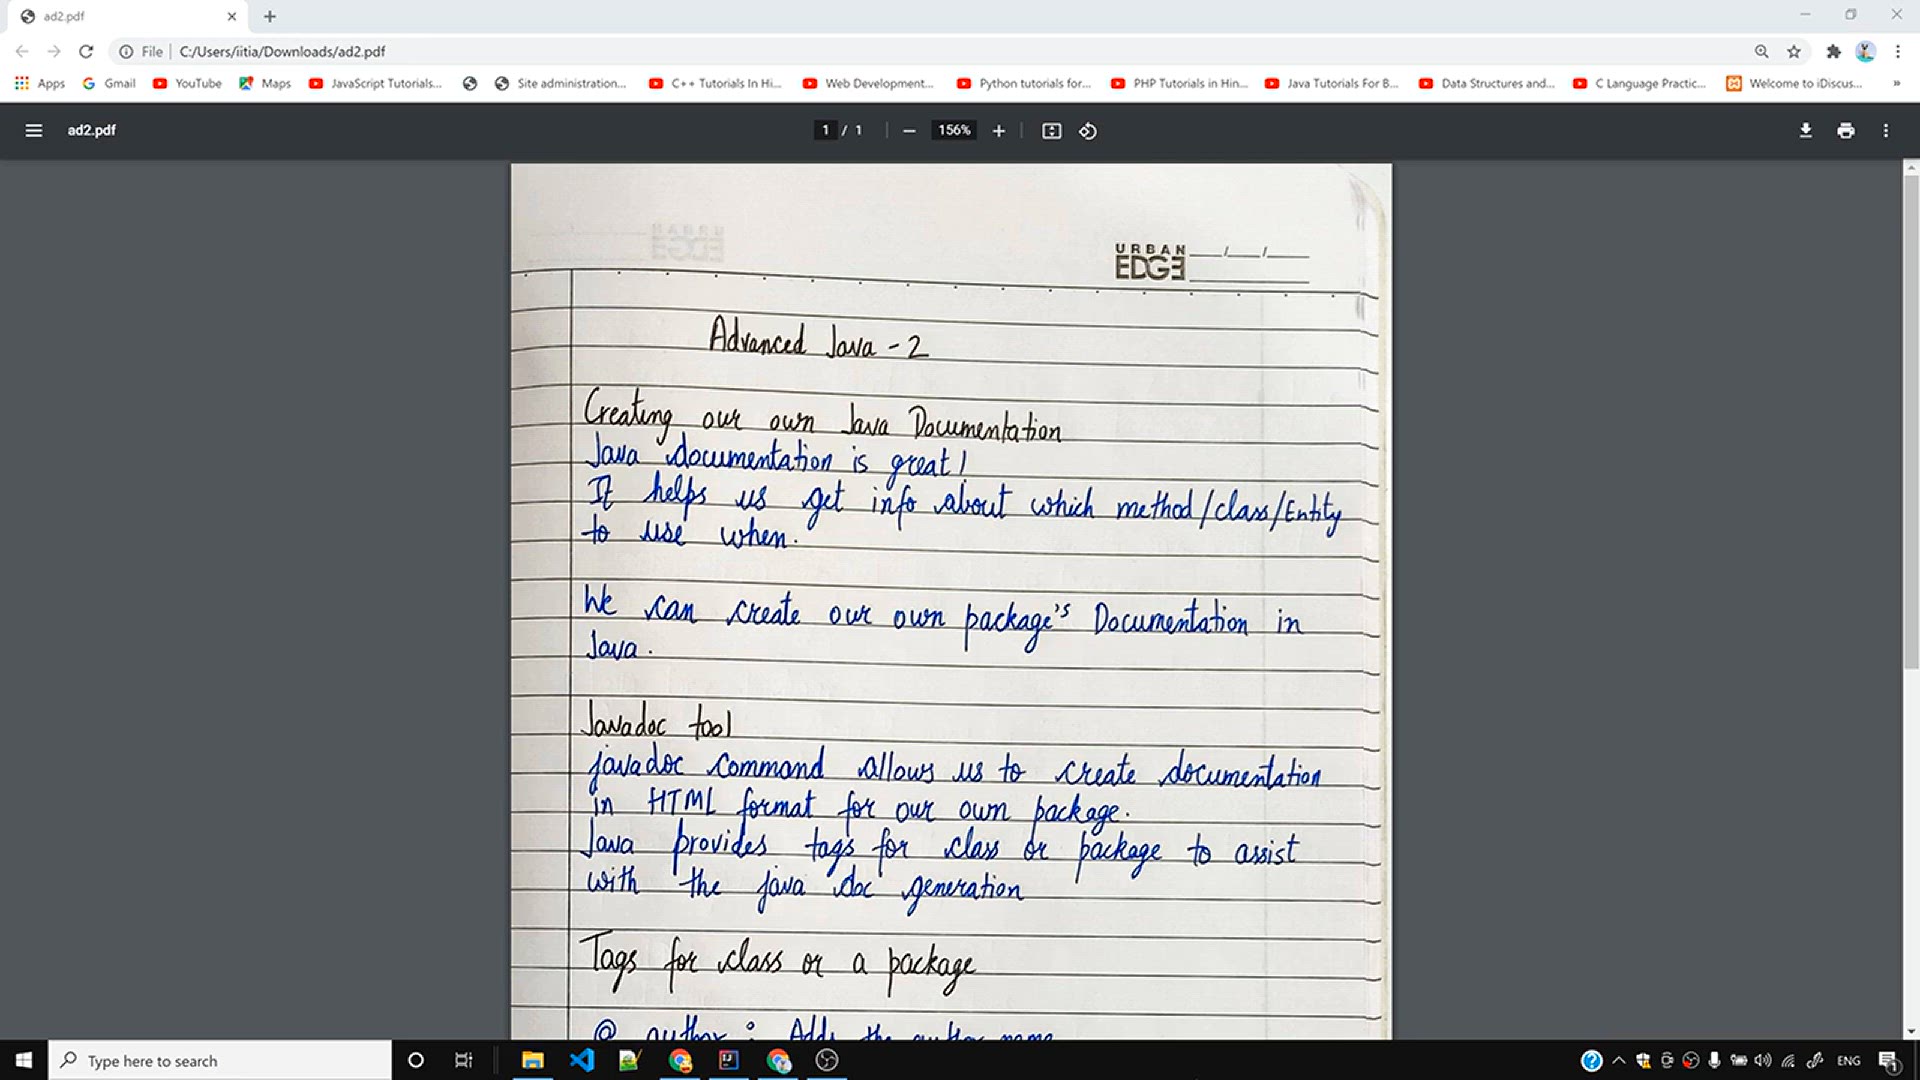 ad2.pdf
File
C:/Users/iitia/Downloads/ad2.pdf
Apps
Gmail
YouTube
Maps
JavaScript Tutorials...
Site administration...
C++ Tutorials In Hi...
Web Development...
Python tutorials for...
PHP Tutorials in Hin...
Java Tutorials For B...
Data Structures and...
C Language Practic...
Welcome to iDiscus...
»
ad2.pdf
1 / 1
156%
URBAN
EDGE
Advanced Java - 2
Creating our own Java Documentation
Java documentation is great!
It helps us get info about which method/class/Entity
to use when.
We can create our own package's Documentation in
Java.
Javadoc tool
javadoc command allows us to create documentation
in HTML format for our own package.
Java provides tags for class or package to assist
with the java doc generation
Tags for class or a package
@ author : Adds the author name
Type here to search
ENG